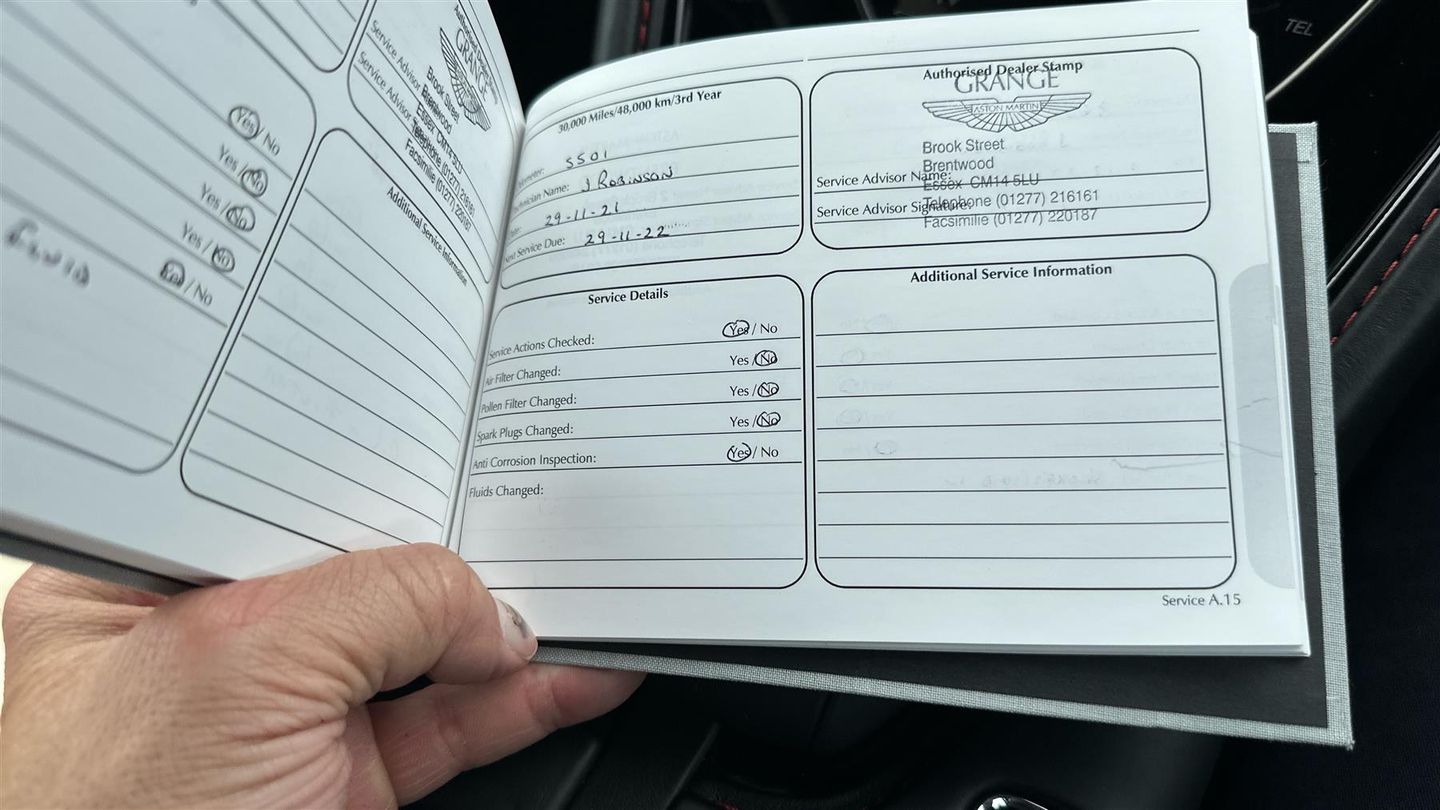 Yes / No
Yes / No
Yes / No
Yes / No
Yes / No
Authorised Dealer Stamp
GRANGE
Service Advisor
Service Advisor
Brook Street
Brentwood
Essex CM14 5LU
Telephone (01277) 216161
Facsimilie (01277) 220187
Additional Service Information
30,000 Miles/48,000 km/3rd Year
5501
Technician Name: J ROBINSON
29-11-21
Next Service Due: 29-11-22
Authorised Dealer Stamp
GRANGE
ASTON MARTIN
Brook Street
Brentwood
Service Advisor Name:
Essex CM14 5LU
Telephone (01277) 216161
Service Advisor Signature:
Facsimilie (01277) 220187
Service Details
Service Actions Checked: Yes / No
Air Filter Changed: Yes / No
Pollen Filter Changed: Yes / No
Spark Plugs Changed: Yes / No
Anti Corrosion Inspection: Yes / No
Fluids Changed:
Additional Service Information
Service A.15
TEL